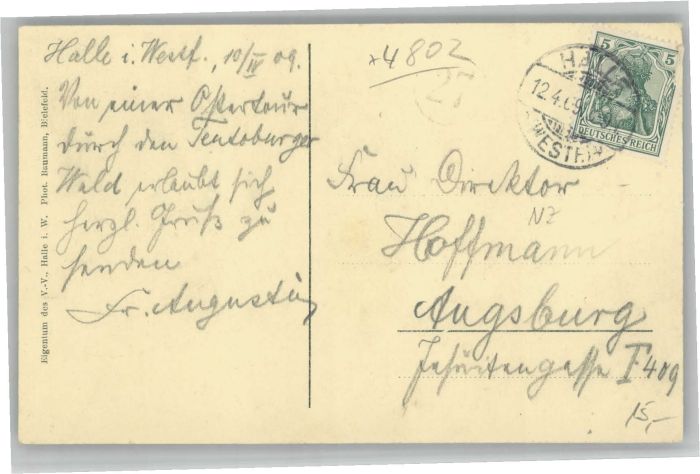 Halle i. Westf., 10/IV 09.
Von einer Ostertour
durch den Teutoburger
Wald erlaubt sich
herzl. Gruß zu
senden
Fr. Augustin
Eigentum des V.-V., Halle i. W. Phot. Baumann, Bielefeld.
*4802
27
5 5
DEUTSCHES REICH
HALLE
12.4.09
(WESTF.)
Frau Direktor
NZ
Hoffmann
Augsburg
Jesuitengasse F 409
15,-